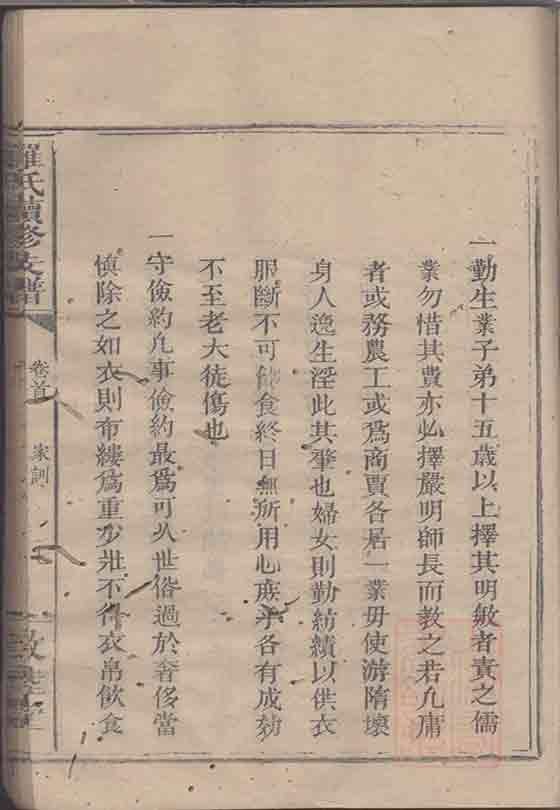 一勤生業子弟十五歲以上擇其明敏者責之儒
業勿惜其費亦必擇嚴明師長而教之若凡庸
者或務農工或爲商賈各居一業毋使游隋壞
身人逸生淫此其肇也婦女則勤紡績以供衣
服斷不可飽食終日無所用心庶乎各有成効
不至老大徒傷也
一守儉約凡事儉約最爲可久世俗過於奢侈當
慎除之如衣則布縷爲重少壯不得衣帛飲食
羅氏續修支譜
卷首
家訓